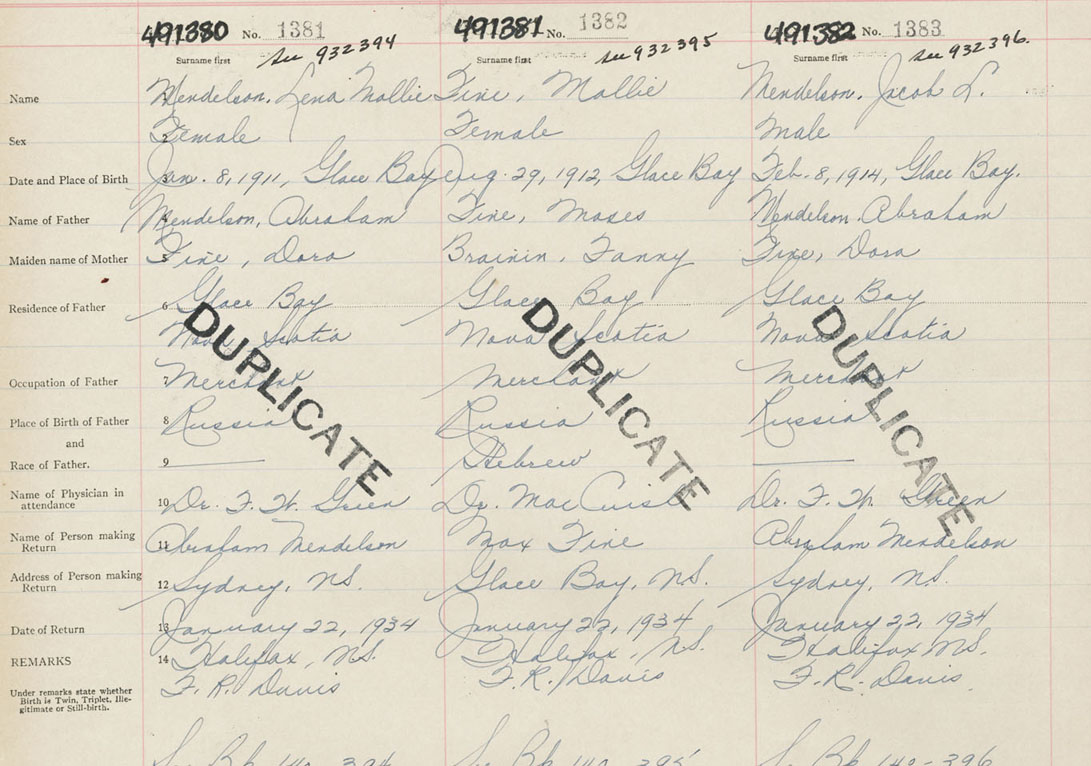 491380 No. 1381 491381 No. 1382 491382 No. 1383
See 932394 See 932395 See 932396.
Surname first Surname first Surname first
Name Mendelson, Lena Mollie Fine, Mollie Mendelson, Jacob L.
Sex 2 Female Female Male
Date and Place of Birth 3 Jan. 8, 1911, Glace Bay Aug. 29, 1912, Glace Bay Feb. 8, 1914, Glace Bay.
Name of Father 4 Mendelson, Abraham Fine, Moses Mendelson, Abraham
Maiden name of Mother 5 Fine, Dora Brainin, Fanny Fine, Dora
Residence of Father 6 Glace Bay Glace Bay Glace Bay
Nova Scotia Nova Scotia Nova Scotia
DUPLICATE DUPLICATE DUPLICATE
Occupation of Father 7 Merchant Merchant Merchant
Place of Birth of Father 8 Russia Russia Russia
and
Race of Father. 9 Hebrew
Name of Physician in
attendance 10 Dr. F. W. Green Dr. Dr. F. W. Green
Name of Person making
Return 11 Abraham Mendelson Max Fine Abraham Mendelson
Address of Person making
Return 12 Sydney, NS. Glace Bay, NS. Sydney, NS.
Date of Return 13 January 22, 1934 January 22, 1934 January 22, 1934
REMARKS 14 Halifax, NS. Halifax, NS. Halifax NS.
F. R. Davis F. R. Davis F. R. Davis
Under remarks state whether
Birth is Twin, Triplet, Ille-
gitimate or Still-birth.